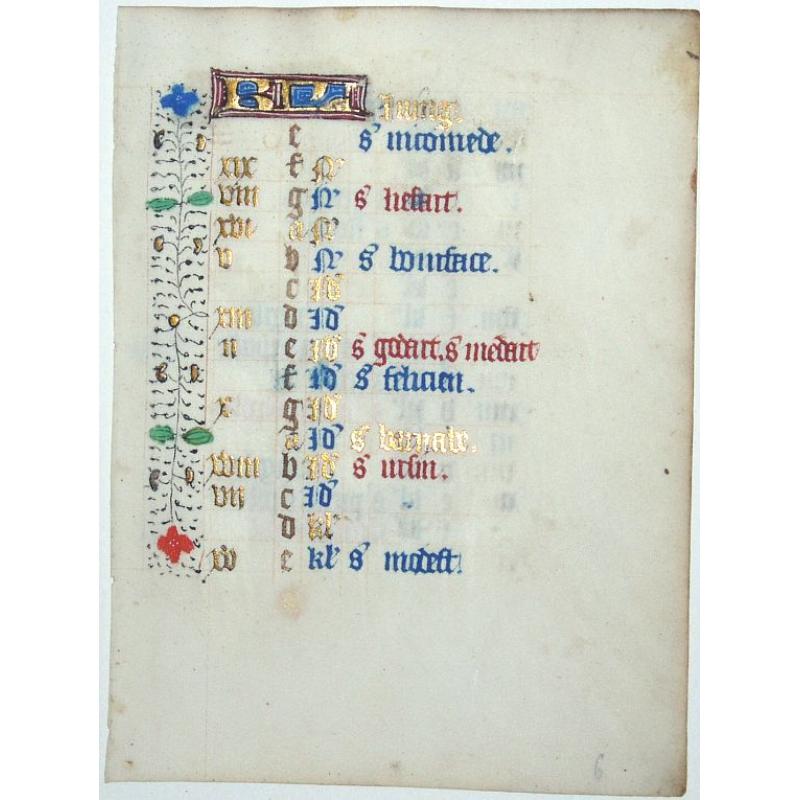 KL Juing.
e s nicomede.
xix f N
viii g N s liefart.
xvi a N
v b N s boniface.
c Id
xiii d Id
ii e Id s godart. s medart
f Id s felicien.
x g Id
a Id s barnabe.
xviii b Id s ursin.
vii c Id
d kl
xv e kl s modest.
6